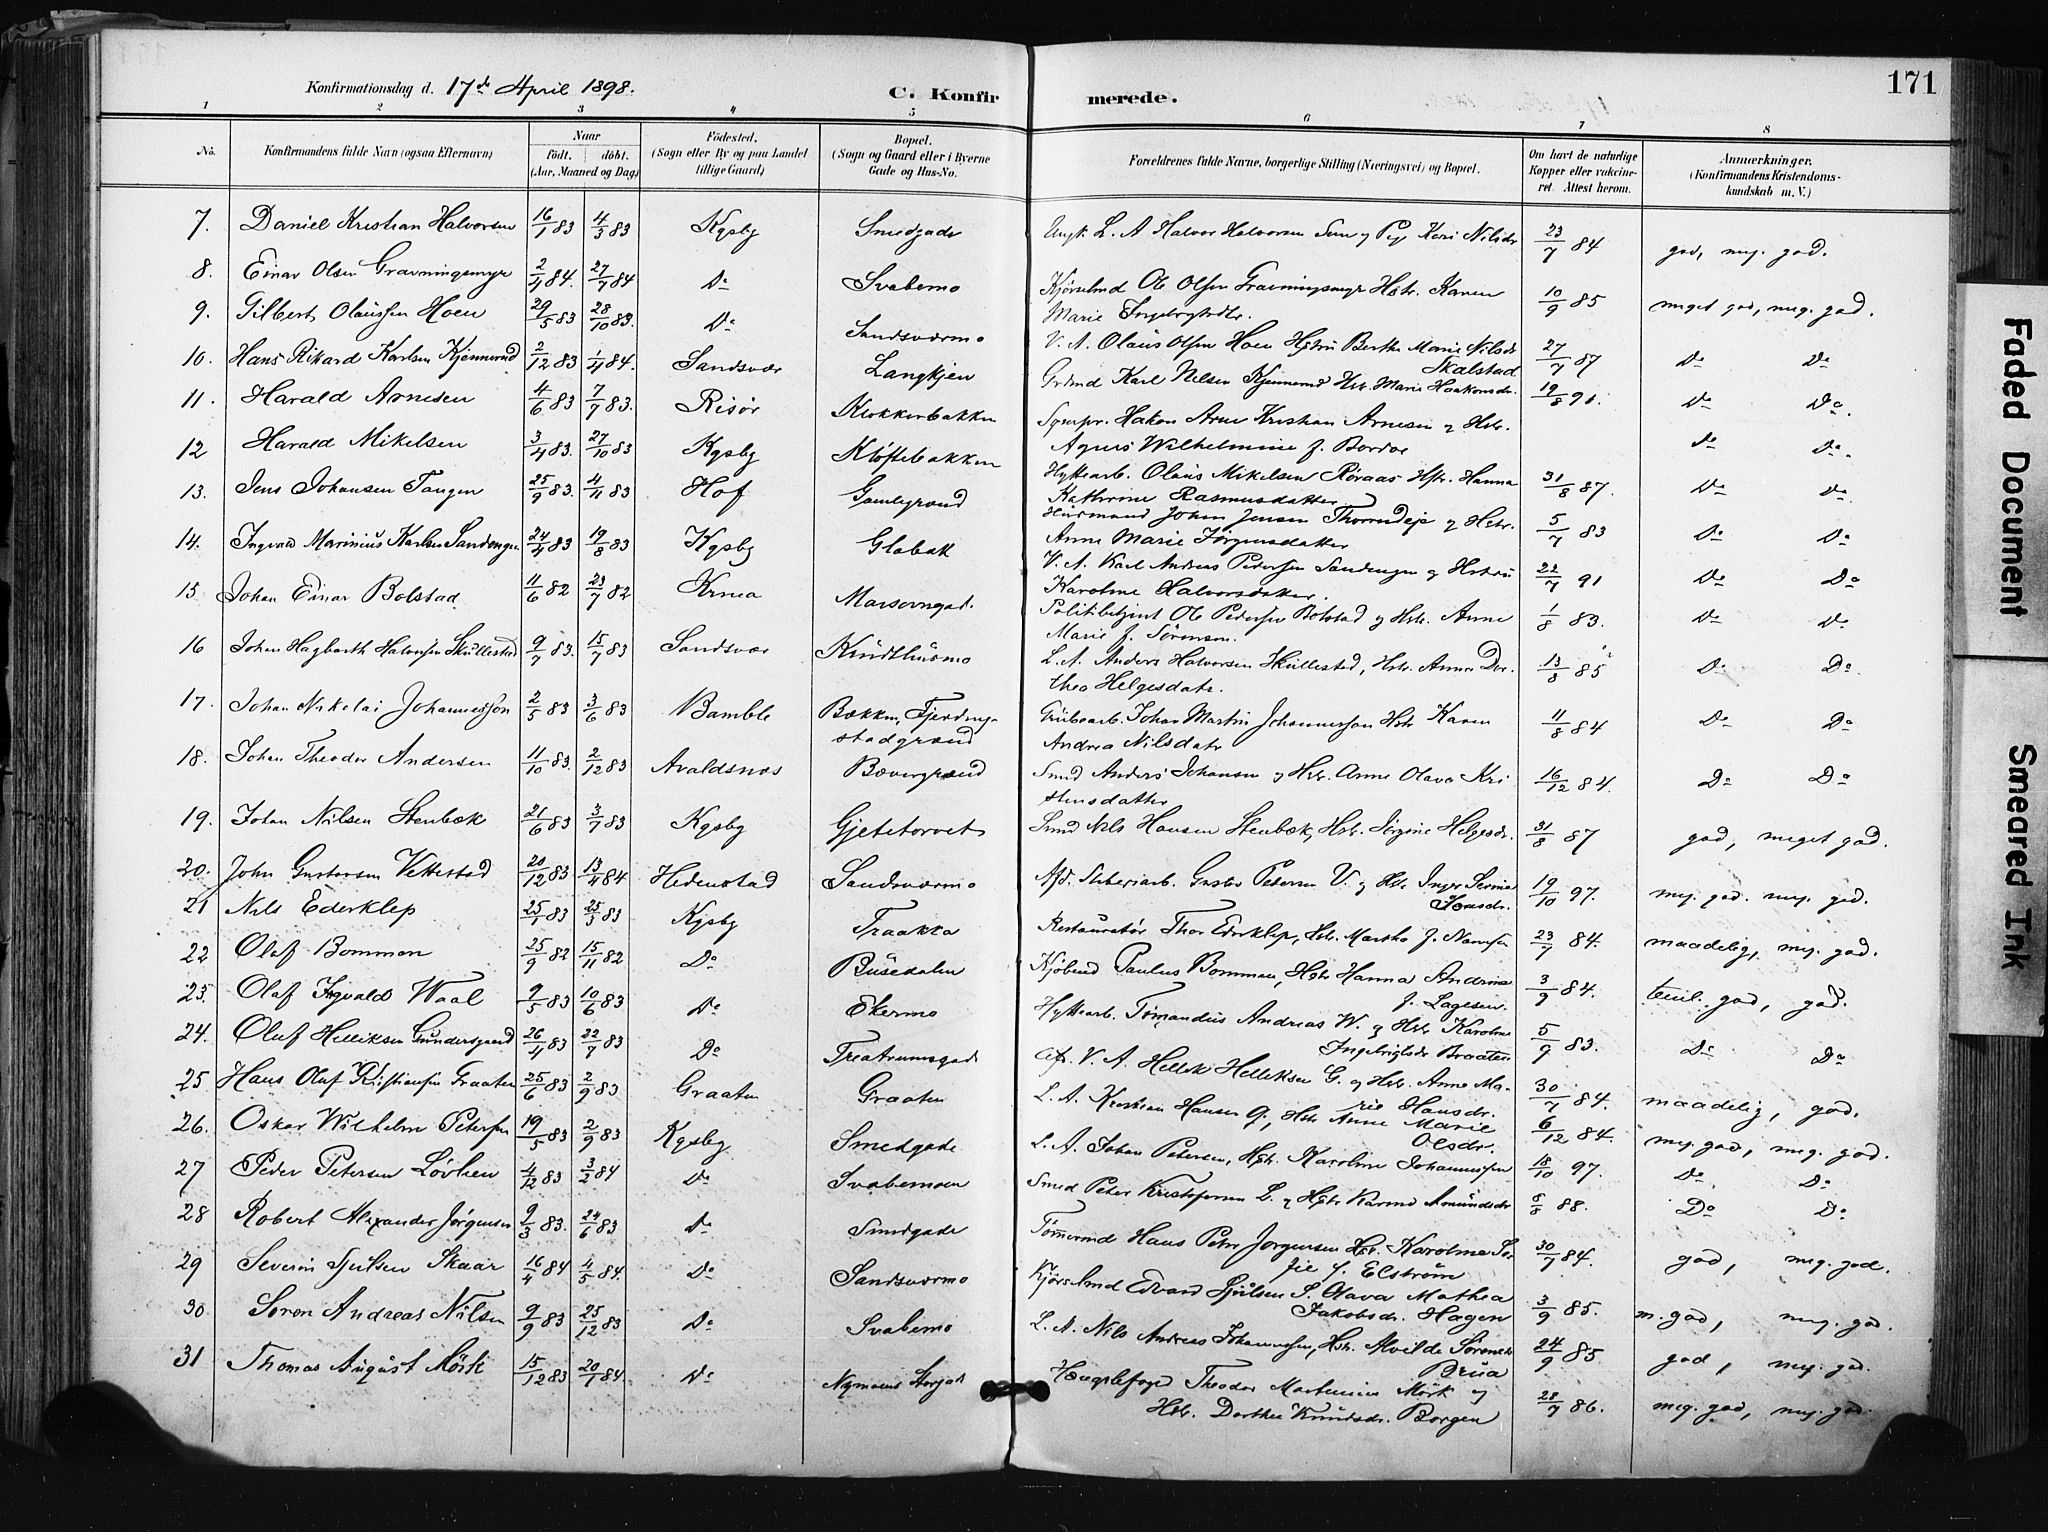 Konfirmationsdag d. 17de April 1898.
C. Konfir merede. 171
1 2 3 4 5 6 7 8
No. Konfirmandens fulde Navn (ogsaa Efternavn) Naar født. døbt. (Aar, Maaned og Dag) Fødested. (Sogn eller By og paa Landet tillige Gaard) Bopæl. (Sogn og Gaard eller i Byerne Gade og Hus-No. Forældrenes fulde Navne, borgerlige Stilling (Næringsvei) og Bopæl. Om havt de naturlige Kopper eller vaccineret. Attest herom. Anmærkninger. (Konfirmandens Kristendomskundskab m. V.)
7. Daniel Kristian Halvorsen 16/1 83 4/3 83 Kgsby Smedgade L. A Halvor Halvorsen og Kari Nilsdr 23/7 84 god, meg. god.
8. Einar Olsen Gravningsmyr 2/4 84. 27/7 84 Do Svabemo Kjørselmd Ole Olsen Gravningsmyr Hstr. Karen
Marie Ingebrigtsdtr. 10/9 85 meget god, meg. god.
9. Gilbert Olaussen Hoen 29/5 83 28/10 83. Do Sandsværmo V. A. Olaus Olsen Hoen Hstru Berthe Marie Nilsdr
Skalstad 27/7 87 Do Do
10. Hans Rikard Karlsen Kjennerud 2/12 83 1/4 84. Sandsvær Langkjen Grdmd Karl Nilsen Kjennerud Hstr. Marie Haakonsdr. 19/8 91. Do Do.
11. Harald Arnesen 4/6 83 7/7 83. Risør Klokkerbakken Hakon Arne Kristian Arnesen og Hstr.
Agnes Wilhelmine f. Do Do.
12 Harald Mikelsen 3/4 83. 27/10 83 Kgsby Kløftebakken Hyttearb. Olaus Mikelsen Røraas Hstr. Hanna
Kathrine Rasmusdatter 31/8 87. Do Do
13. Jens Johansen Tangen 25/9 83. 4/11 83 Hof Gamlegrænd Husmand Johan Jensen og Hstr.
Anne Marie Jørgensdatter 5/7 83 Do Do
14. Ingvald Marinius Karlsen Sandengen 24/4 83 19/8 83 Kgsby Glabak V. A. Karl Andreas Pedersen Sandengen og Hstru
Karoline Halvorsdatter. 22/7 91 Do Do
15 Johan Einar Bolstad 11/6 82 23/7 82 Politibetjent Ole Pedersen Bolstad og Hstr. Anne
Marie f. Sørensen. 1/8 83. Do Do
16 Johan Hagbarth Halvorsen Skullestad 9/7 83. 15/7 83 Sandsvær Knudthusmo L. A. Anders Halvorsen Skullestad, Hstr. Anne Dor-
thea Helgesdatr. 13/8 85 Do Do
17. Johan Nikolai Johannessen 2/5 83 3/6 83 Bamble Bækken, Fjerding-
stadgrænd Grubearb. Johan Martin Johannessen Hstr Karen
Andrea Nilsdatr 11/8 84 Do Do
18. Johan Theodor Andersen 11/10 83. 2/12 83 Avaldsnes Bævergrænd Smed Anders Johansen og Hstr. Anne Olava Kri
stensdatter 16/12 84. Do Do
19. Johan Nilsen Stenbæk 21/6 83 3/7 83 Kgsby Gjetetorvet Smed Nils Hansen Stenbæk, Hstr. Jørgine Helgesdr. 31/8 87 god, meget god.
20. John Gustavsen Vettestad 20/12 83 13/4 84 Hedenstad Sandsværmo Gustav Petersen V. og Hstr. Inger
19/10 97. meg. god. meg. god.
21 Nils Ederklep 25/1 83 25/3 83 Kgsby Traakka Restauratør Thor Ederklep, Hstr. Martha f. Nansen 23/7 84. maadelig, meg. god.
22 Olaf Bommen 25/9 82 15/11 82 Do Busedalen Kjøbmd Paulus Bommen, Hstr Hanna Andrine
f. Lagesen. 3/9 84. teml. god, god.
23. Olaf Ingvald Waal 9/5 83 10/6 83 Do Ekermo Hyttearb. Andreas W. og Hstr Karoline
Ingebrigtsdr Braaten 5/9 83. Do Do
24. Oluf Helliksen Gundersgaard 26/4 83 22/7 83 Do Treatrumsgade V. A. Hellik Helliksen G. og Hstr. Anne Ma-
rie Hansdr. 30/7 84. maadelig, god.
25 Hans Olaf Kristiansen Graaten 25/6 83 2/9 83 Graaten Graaten L. A. Kristian Hansen G, Hstr Anne Marie
Olsdr. 6/12 84. meg. god, meg. god.
26. Oskar Wilhelm Petersen 19/5 83 2/9 83 Kgsby Smedgade L. A. Johan Petersen, Hstr. Karoline Johannessen 18/10 97. Do Do
27 Peder Petersen Løvhen 4/12 83 3/2 84 Do Svabemoen Smed Peter Kristofersen L. og Hstr Karine Amundsdr 5/8 88. Do Do
28 Robert Alexander Jørgensen 9/3 83. 24/6 83 Do Smedgade Tømmermd Hans Peter Jørgensen Hstr. Karoline So-
fie f. Elstrøm 30/7 84. god, meg. god.
29 Severin Sjulsen Skaar 16/4 84 4/5 84. Do Sandsværmo Kjørselmd Edvard Sjulsen S. Olava Mathea
Jakobsdr. Hagen 3/9 85. m. god, meg. god.
30. Søren Andreas Nilsen 9/9 83 25/12 83 Do Svabemo L. A. Nils Andreas Johannessen, Hstr. Alvilde Sørensdr
Brua 24/9 85 god, meg. god.
31 Thomas August Mørk 15/12 83 20/1 84 Do Nymoens Theodor Martinius Mørk og
Hstr. Dorthea Knudsdr. Borgen 28/7 86. meg. god, meg. god.
Faded Document
Smeared Ink